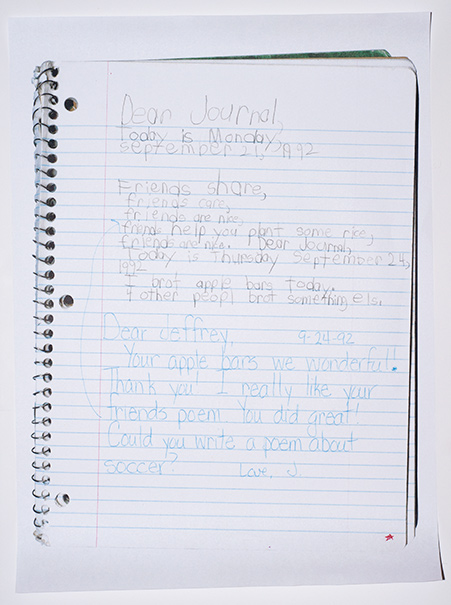 Dear Journal,
today is Monday,
september 21, 1992
Friends share,
friends care,
friends are nice,
friends help you plant some rice,
friends are nice. Dear Journal,
Today is Thursday September 24,
1992
I brot apple bars today.
4 other peopl brot something els.
Dear Jeffrey, 9-24-92
Your apple bars we wonderful!
Thank you! I really like your
friends poem. You did great!
Could you write a poem about
soccer? Love, J.